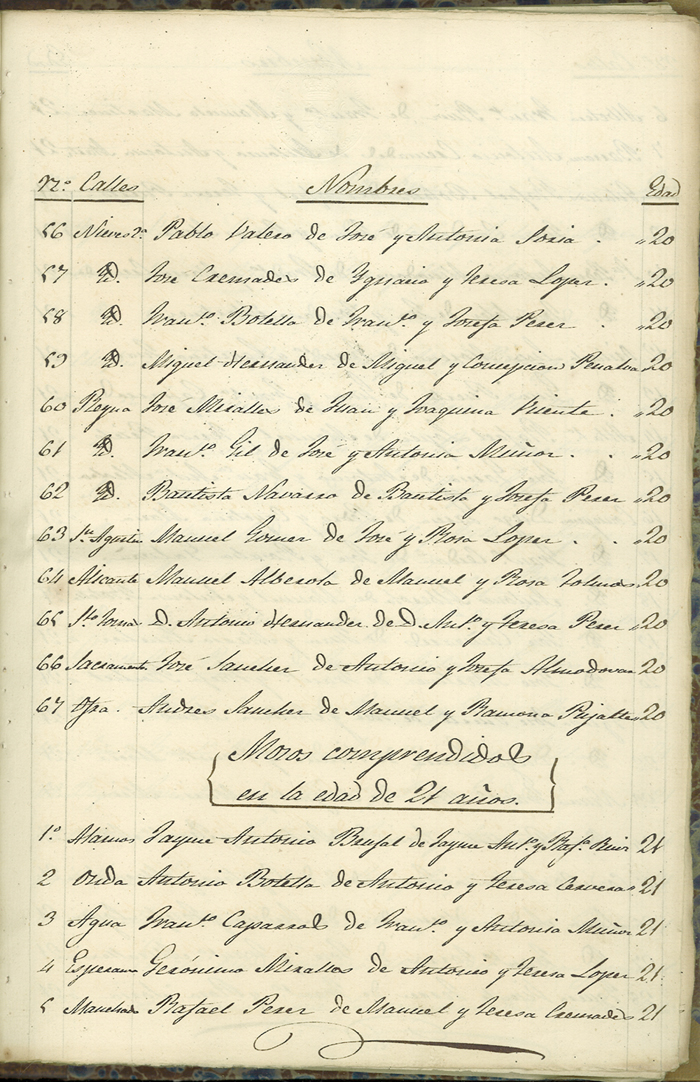 N.º Calles Nombres Edad
56 Nieves 2ª Pablo Valero de José y Antonia Soria . „20
57 Yd. José Cremades de Ygnacio y Teresa Loper . „20
58 Yd. Franco. Botella de Franco. y Josefa Perer . „20
59 Yd. Miguel Hernander de Miguel y Concepcion Penalva 20
60 Reyna José Miralles de Juan y Joaquina Visente . „20
61 Yd. Franco. Gil de José y Antonia Muñor . . „20
62 Yd. Bautista Navarro de Bautista y Josefa Perer „20
63 Sn. Agustin Manuel Gomer de José y Rosa Loper . . „20
64 Alicante Manuel Alberola de Manuel y Rosa 20
65 Sto. Tomas D. Antonio Hernander de D. Anto. y Teresa Perer „20
66 Sacramento José Sancher de Antonio y Josefa Almodovar 20
67 Ofra. Andres Sancher de Manuel y Ramona 20
Mosos comprendidos
en la edad de 21 años.
1.º Alamos Jayme Antonio Brufal de Jayme Anto. y Rafa. Ruir 21
2 Onda Antonio Botella de Antonio y Teresa Cerveras 21
3 Agua Franco. Caparros de Franco. y Antonia Muñor 21
4 Esperanza Gerónimo Miralles de Antonio y Teresa Loper 21
5 Manchado Rafael Perer de Manuel y Teresa Cremades 21